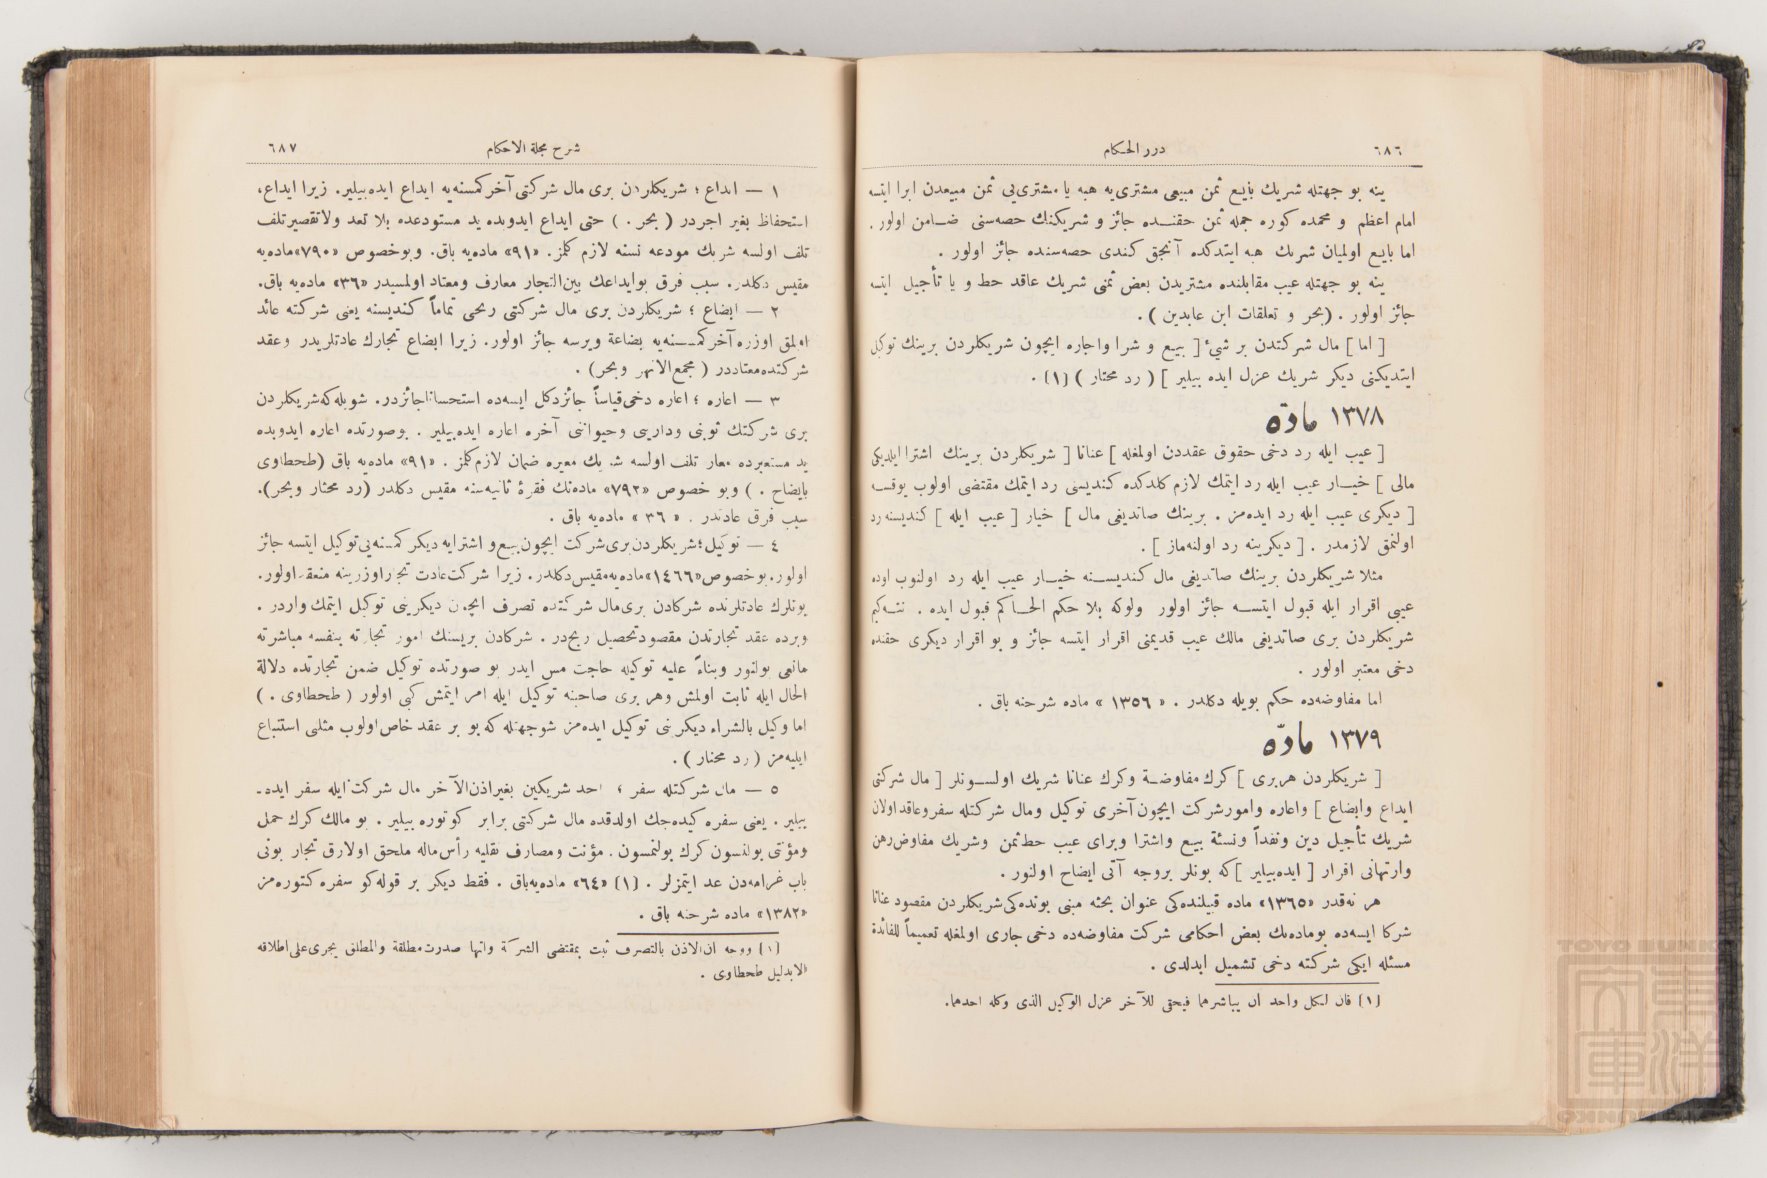 ٦٨٦
درر الحكام
ينه بو جهتله شريك بايع ثمن مبيعى مشترى‌يه هبه يا مشترى‌يى ثمن مبيعدن ابرا ايتسه
امام اعظم و محمده كوره جمله ثمن حقنده جائز و شريكنك حصه‌سنى ضامن اولور .
اما بايع اولميان شريك هبه ايتدكده آنجق كندى حصه‌سنده جائز اولور .
ينه بو جهتله عيب مقابلنده مشتريدن بعض ثمنى شريك عاقد حط و يا تأجيل ايتسه
جائز اولور . (بحر و تعلقات ابن عابدين ) .
[ اما ] مال شركتدن بر شيء [ بيع و شرا واجاره ايچون شريكلردن برينك توكيل
ايتديكنى ديكر شريك عزل ايده بيلير ] ( رد محتار ) (١) .
١٣٧٨ مادّه
[ عيب ايله رد دخى حقوق عقددن اولمغله ] عنانا [ شريكلردن برينك اشترا ايلديكى
مالى ] خيار عيب ايله رد ايتمك لازم كلدكده كنديسى رد ايتمك مقتضى اولوب يوقسه
[ ديكرى عيب ايله رد ايده‌مز . برينك صاتديغى مال ] خيار [ عيب ايله ] كنديسنه رد
اولنمق لازمدر . [ ديكرينه رد اولنه‌ماز ] .
مثلا شريكلردن برينك صاتديغى مال كنديسنه خيار عيب ايله رد اولنوب اوده
عيبى اقرار ايله قبول ايتسه جائز اولور ولوكه بلا حكم الحاكم قبول ايده . نته‌كيم
شريكلردن برى صاتديغى مالك عيب قديمنى اقرار ايتسه جائز و بو اقرار ديكرى حقنده
دخى معتبر اولور .
اما مفاوضه‌ده حكم بويله دكلدر . « ١٣٥٦ » ماده شرحنه باق .
١٣٧٩ مادّه
[ شريكلردن هربرى ] كرك مفاوضة وكرك عنانا شريك اولسونلر [ مال شركتى
ايداع وابضاع ] واعاره وامورشركت ايچون آخرى توكيل ومال شركتله سفر وعاقد اولان
شريك تأجيل دين ونقداً ونسئة بيع واشترا وبراى عيب حط ثمن وشريك مفاوض رهن
وارتهانى اقرار [ ايده‌بيلير ] كه بونلر بروجه آتى ايضاح اولنور .
هر نه‌قدر «١٣٦٥» ماده قبيلنده‌كى عنوان بحثه مبنى بونده‌كى شريكلردن مقصود عنانا
شركا ايسه‌ده بوماده‌نك بعض احكامى شركت مفاوضه‌ده دخى جارى اولمغله تعميماً للفائدة
مسئله ايكى شركته دخى تشميل ايدلدى .
(١) فان لكل واحد ان يباشرهما فبحق للآخر عزل الوكيل الذى وكله احدهما.
شرح مجلة الاحكام
٦٨٧
١ — ايداع ؛ شريكلردن برى مال شركتى آخر كمسنه‌يه ايداع ايده‌بيلير. زيرا ايداع،
استحفاظ بغير اجردر ( بحر . ) حتى ايداع ايدوبده يد مستودعده بلا تعد ولا تقصير تلف
تلف اولسه شريك مودعه نسنه لازم كلمز. «٩١» ماده‌يه باق. وبوخصوص «٧٩٠» ماده‌يه
مقيس دكلدر. سبب فرق بوايداعك بين‌التجار معارف ومعتاد اولمسيدر «٣٦» ماده‌يه باق.
٢ — ابضاع ؛ شريكلردن برى مال شركتى ربحى تماماً كنديسنه يعنى شركته عائد
اولمق اوزره آخر كمسنه‌يه بضاعة ويرسه جائز اولور. زيرا ابضاع تجارك عادتلريدر وعقد
شركتده معتاددر ( مجمع الانهر وبحر ) .
٣ — اعاره ؛ اعاره دخى قياساً جائز دكل ايسه‌ده استحسانا جائزدر. شويله‌كه شريكلردن
برى شركتك ثوبنى ودارينى وحيواننى آخره اعاره ايده‌بيلير . بوصورتده اعاره ايدوبده
يد مستعيرده معار تلف اولسه شريك معيره ضمان لازم كلمز . «٩١» ماده‌يه باق (طحطاوى
بايضاح . ) وبو خصوص «٧٩٢» ماده‌نك فقرۀ ثانيه‌سنه مقيس دكلدر (رد محتار وبحر).
سبب فرق عادتدر . « ٣٦ » ماده‌يه باق .
٤ — توكيل؛ شريكلردن برى شركت ايچون بيع و اشترايه ديكر كمسنه‌يى توكيل ايتسه جائز
اولور. بوخصوص «١٤٦٦» ماده‌يه مقيس دكلدر. زيرا شركت عادت تجار اوزرينه منعقد اولور.
بونلرك عادتلرنده شركادن برى مال شركتده تصرف ايچون ديكرينى توكيل ايتمك واردر .
وبرده عقد تجارتدن مقصود تحصيل ربح‌در . شركادن بريسنك امور تجارته بنفسه مباشرته
مانعى بولنور وبناءً عليه توكيله حاجت مس ايدر بو صورتده توكيل ضمن تجارتده دلالة
الحال ايله ثابت اولمش وهر برى صاحبنه توكيل ايله امر ايتمش كبى اولور ( طحطاوى . )
اما وكيل بالشراء ديكرينى توكيل ايده‌مز شوجهتله كه بو بر عقد خاص اولوب مثلى استتباع
ايليه‌مز ( رد محتار ) .
٥ — مال شركتله سفر ؛ احد شريكين بغير اذن الآخر مال شركت ايله سفر ايده‌-
بيلير . يعنى سفره كيده‌جك اولدقده مال شركتى برابر كوتوره بيلير . بو مالك كرك حمل
ومؤنتى بولنسون كرك بولنمسون . مؤنت ومصارف نقليه رأس‌ماله ملحق اولارق تجار بونى
باب غرامه‌دن عد ايتمزلر . (١) «٦٤» ماده‌يه‌باق . فقط ديكر بر قوله‌كو سفره كتوره‌مز
«١٣٨٢» ماده شرحنه باق .
(١) ووجه ان الاذن بالتصرف ثبت بمقتضى الشركة وانها صدرت مطلقة والمطلق يجرى على اطلاقه
الا بدليل طحطاوى .
TOYO BUNKO